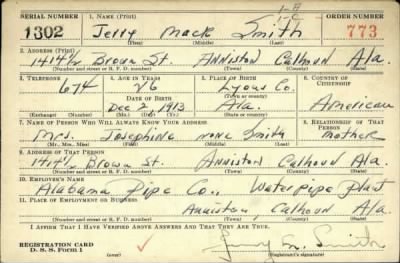 SERIAL NUMBER 1. NAME (Print) ORDER NUMBER
1302 Jerry Mack Smith 773
(First) (Middle) (Last)
2. ADDRESS (Print)
1414½ Brown St. Anniston Calhoun Ala.
(Number and street or R. F. D. number) (Town) (County) (State)
3. TELEPHONE 4. AGE IN YEARS 5. PLACE OF BIRTH 6. COUNTRY OF CITIZENSHIP
674 26 Co.
DATE OF BIRTH (Town or county)
Dec 2, 1913 Ala. American
(Exchange) (Number) (Mo.) (Day) (Yr.) (State or country)
7. NAME OF PERSON WHO WILL ALWAYS KNOW YOUR ADDRESS 8. RELATIONSHIP OF THAT PERSON
Mrs. Josephine none Smith Mother
(Mr., Mrs., Miss) (First) (Middle) (Last)
9. ADDRESS OF THAT PERSON
1414½ Brown St. Anniston Calhoun Ala.
(Number and street or R. F. D. number) (Town) (County) (State)
10. EMPLOYER'S NAME
Alabama Pipe Co., Water pipe Plant
11. PLACE OF EMPLOYMENT OR BUSINESS
Anniston Calhoun Ala
(Number and street or R. F. D. number) (Town) (County) (State)
I AFFIRM THAT I HAVE VERIFIED ABOVE ANSWERS AND THAT THEY ARE TRUE.
REGISTRATION CARD
D. S. S. Form 1 (over) Smith